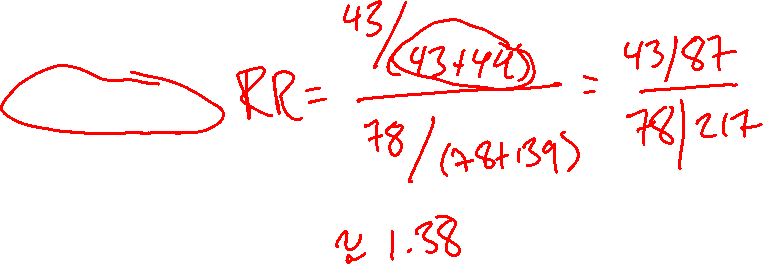 RR = 43/(43+44) / 78/(78+139) = 43/87 / 78/217
≈ 1.38